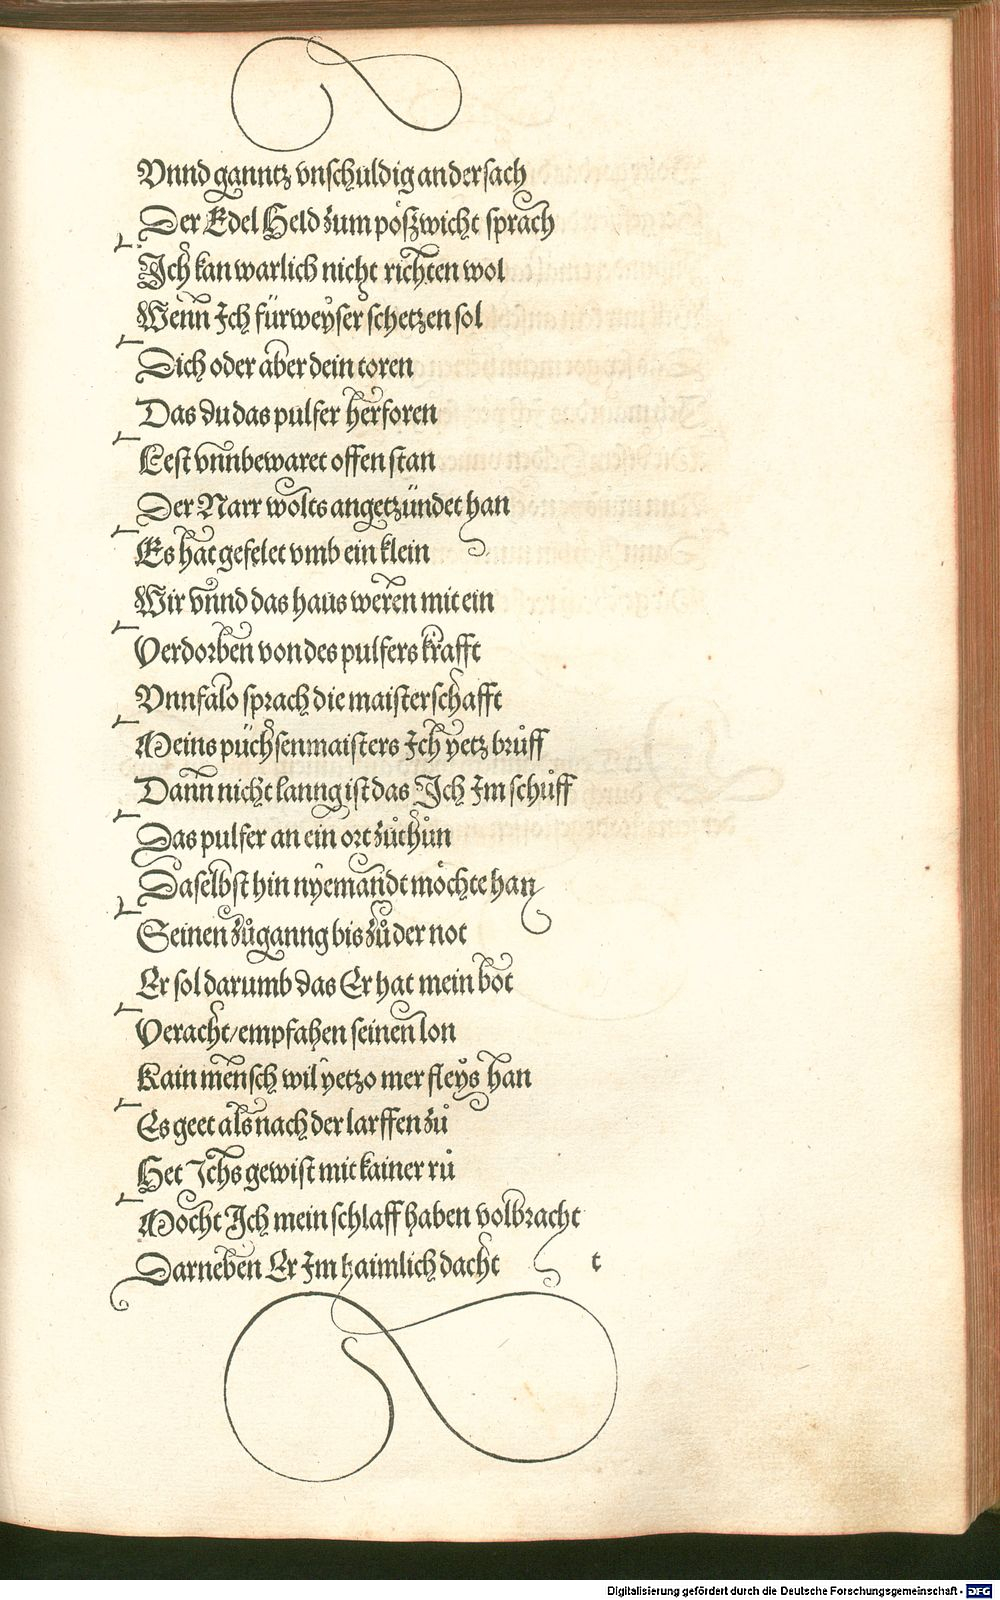 Vnnd ganntz vnschuldig an der sach
Der Edel Held zum pößwicht sprach
Ich kan warlich nicht richten wol
Wenn Ich für weyser schetzen sol
Dich oder aber dein toren
Das du das pulfer herforen
Lest vnnbewaret offen stan
Der Narr wolts angetzündet han
Es hat gefelet vmb ein klein
Wir vnnd das haus weren mit ein
Verdorben von des pulfers krafft
Vnnfalo sprach die maisterschafft
Meins püchsenmaisters Ich yetz brüff
Dann nicht lanng ist das Ich Im schůff
Das pulfer an ein ort zůthůn
Daselbst hin nyemandt möchte han
Seinen zůganng bis zů der not
Er sol darumb das Er hat mein bot
Veracht/empfahen seinen lon
Kain mensch wil yetzo mer fleys han
Es geet als nach der larffen zů
Het Ichs gewist mit kainer rů
Mocht Ich mein schlaff haben volbracht
Darneben Er Im haimlich dacht
t
Digitalisierung gefördert durch die Deutsche Forschungsgemeinschaft - DFG